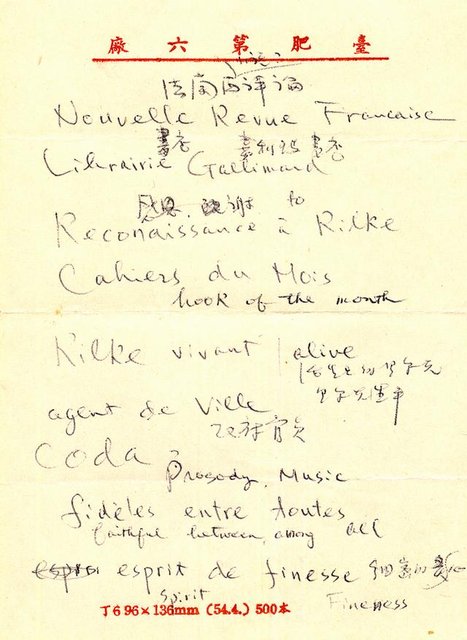 臺肥第六廠
法蘭西評論
Nouvelle Revue Francaise
書店 嘉利瑪書店
Librairie Gallimard
感恩 謝 to
Reconaissance à Rilke
Cahiers du Mois
book of the month
Rilke vivant alive
agent de Ville
coda
Prosody, Music
fidèles entre toutes
faithful between, among all
esprit de finesse
spirit Fineness
T6 96×136mm (54.4.) 500本